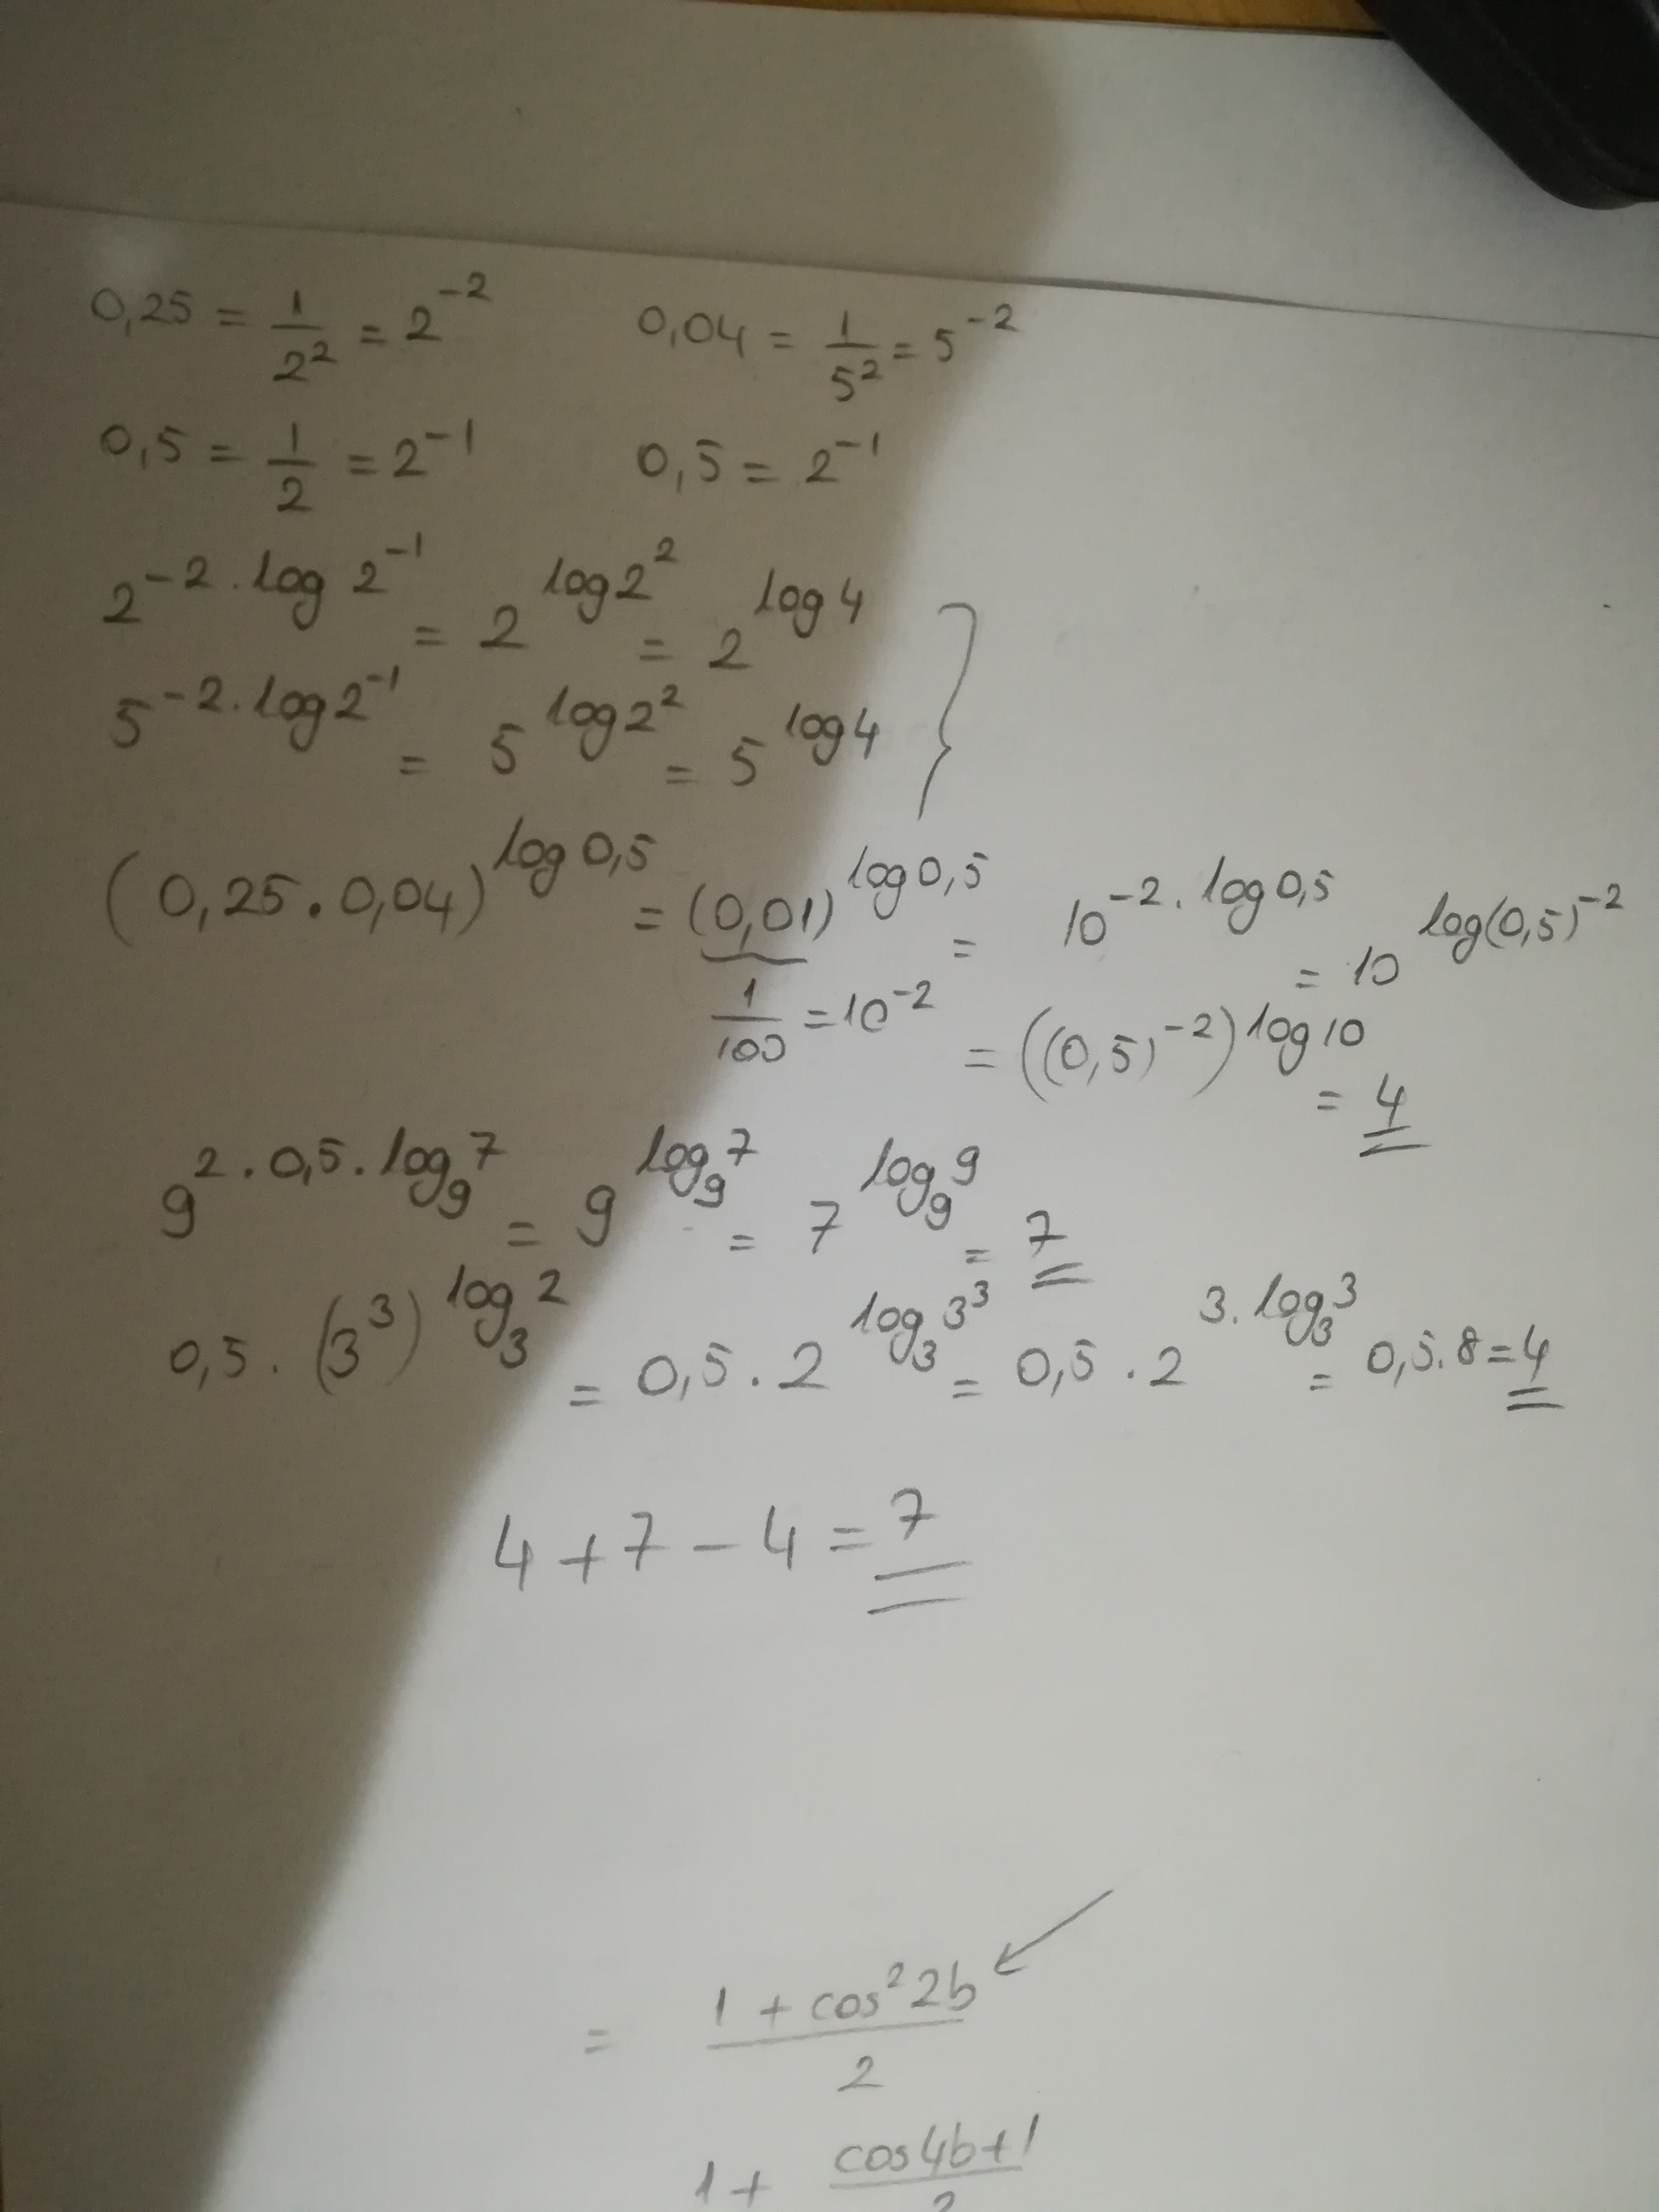 0,25 = 1/2² = 2⁻² 0,04 = 1/5² = 5⁻²
0,5 = 1/2 = 2⁻¹ 0,5 = 2⁻¹
2^(-2 . log 2⁻¹) = 2^(log 2²) = 2^(log 4)
5^(-2 . log 2⁻¹) = 5^(log 2²) = 5^(log 4)
(0,25 . 0,04)^(log 0,5) = (0,01)^(log 0,5) = 10^(-2 . log 0,5) = 10^(log (0,5)⁻²)
1/100 = 10⁻² = ((0,5)⁻²)^(log 10) = 4
9^(2 . 0,5 . log₉ 7) = 9^(log₉ 7) = 7^(log₉ 9) = 7
0,5 . (3³)^(log₃ 2) = 0,5 . 2^(log₃ 3³) = 0,5 . 2^(3 . log₃ 3) = 0,5 . 8 = 4
4 + 7 - 4 = 7
= (1 + cos² 2b)/2
1 + (cos 4b + 1)/2